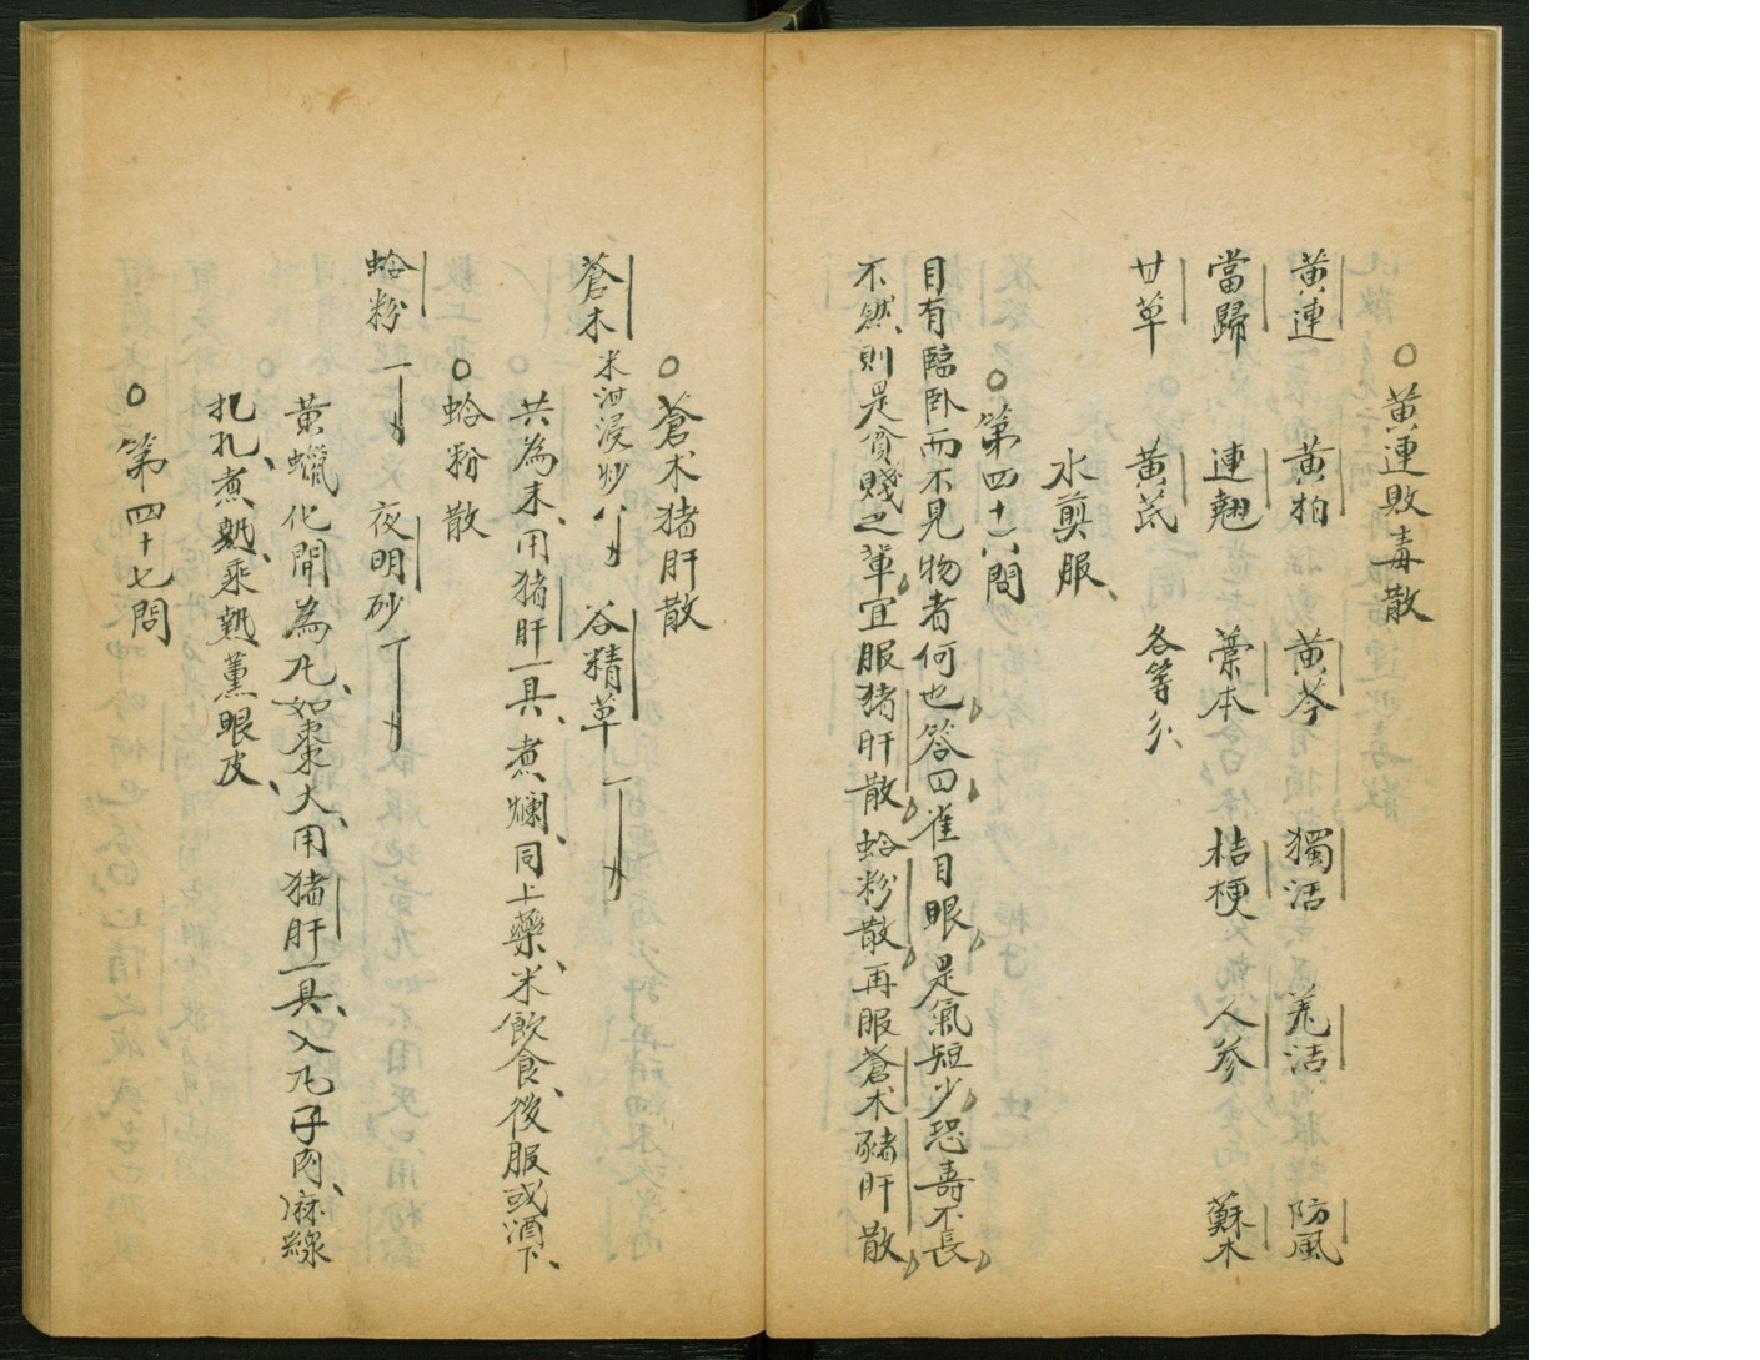 ○黄連敗毒散
黄連 黄柏 黄芩 獨活 羌活 防風
當歸 連翹 藁本 桔梗 人參 蘇木
甘草 黄芪 各等分、
水煎服、
○第四十六問
目有臨卧而不見物者何也答曰雀目眼是氣短少恐壽不長
不然、則是貧賤之輩宜服猪肝散蛤粉散再服蒼术豬肝散
○蒼术猪肝散
蒼木 米泔浸炒 谷精草
共為末、用猪肝一具、煮爛、同上藥、米飲食、後服或酒下、
○蛤粉散
蛤粉 夜明砂
黄蠟化開為丸、如棗大、用猪肝一具、入丸子肉、麻線
扎扎、煮熟、乘熟薰眼皮、
○第四十七問